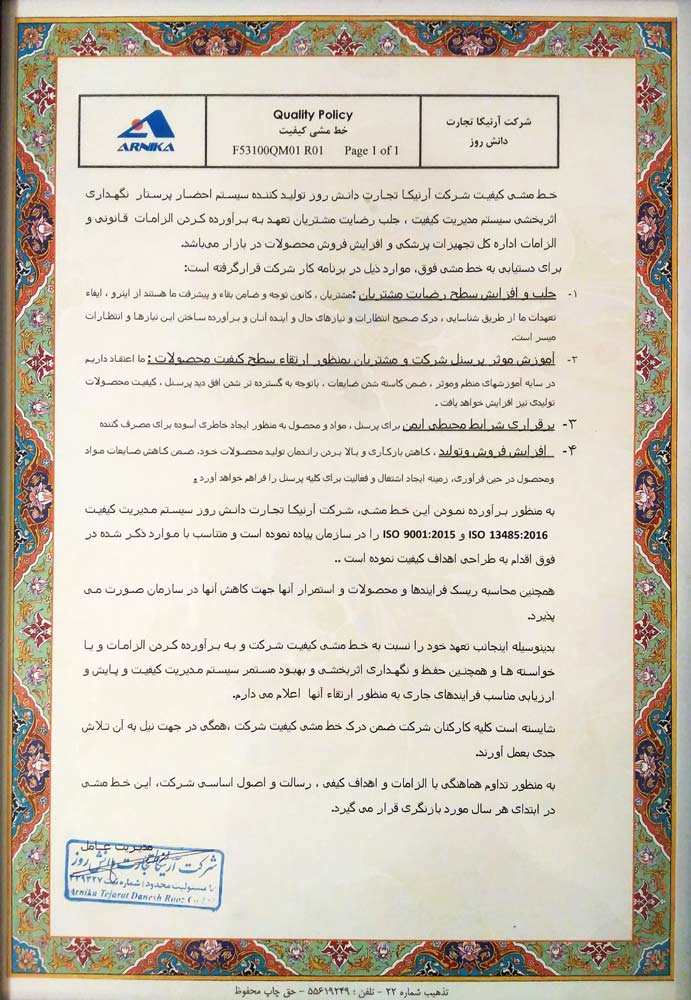 شرکت آرنیکا تجارت
دانش روز
Quality Policy
خط مشی کیفیت
F53100QM01 R01 Page 1 of 1
ARNIKA
خط مشی کیفیت شرکت آرنیکا تجارت دانش روز تولید کننده سیستم احضار پرستار نگهداری
اثربخشی سیستم مدیریت کیفیت ، جلب رضایت مشتریان تعهد به برآورده کردن الزامات قانونی و
الزامات اداره کل تجهیزات پزشکی و افزایش فروش محصولات در بازار می‌باشد.
برای دستیابی به خط مشی فوق، موارد ذیل در برنامه کار شرکت قرارگرفته است:
۱- جلب و افزایش سطح رضایت مشتریان :مشتریان ، کانون توجه و ضامن بقاء و پیشرفت ما هستند از اینرو ، ایفاء
تعهدات ما از طریق شناسایی ، درک صحیح انتظارات و نیازهای حال و آینده آنان و برآورده ساختن این نیازها و انتظارات
میسر است.
۲- آموزش موثر پرسنل شرکت و مشتریان بمنظور ارتقاء سطح کیفیت محصولات : ما اعتقاد داریم
در سایه آموزشهای منظم وموثر ، ضمن کاسته شدن ضایعات ، باتوجه به گسترده تر شدن افق دید پرسنل ، کیفیت محصولات
تولیدی نیز افزایش خواهد یافت .
۳- برقراری شرایط محیطی ایمن برای پرسنل ، مواد و محصول به منظور ایجاد خاطری آسوده برای مصرف کننده
۴- افزایش فروش وتولید ، کاهش بازکاری و بالا بردن راندمان تولید محصولات خود، ضمن کاهش ضایعات مواد
ومحصول در حین فرآوری، زمینه ایجاد اشتغال و فعالیت برای کلیه پرسنل را فراهم خواهد آورد .
به منظور برآورده نمودن این خط مشی، شرکت آرنیکا تجارت دانش روز سیستم مدیریت کیفیت
ISO 13485:2016 و ISO 9001:2015 را در سازمان پیاده نموده است و متناسب با موارد ذکر شده در
فوق اقدام به طراحی اهداف کیفیت نموده است ..
همچنین محاسبه ریسک فرایندها و محصولات و استمرار آنها جهت کاهش آنها در سازمان صورت می
پذیرد.
بدینوسیله اینجانب تعهد خود را نسبت به خط مشی کیفیت شرکت و به برآورده کردن الزامات و یا
خواسته ها و همچنین حفظ و نگهداری اثربخشی و بهبود مستمر سیستم مدیریت کیفیت و پایش و
ارزیابی مناسب فرایندهای جاری به منظور ارتقاء آنها اعلام می دارم.
شایسته است کلیه کارکنان شرکت ضمن درک خط مشی کیفیت شرکت ،همگی در جهت نیل به آن تلاش
جدی بعمل آورند.
به منظور تداوم هماهنگی با الزامات و اهداف کیفی ، رسالت و اصول اساسی شرکت، این خط مشی
در ابتدای هر سال مورد بازنگری قرار می گیرد.
مدیریت عامل
شرکت آرنیکا تجارت دانش روز
(با مسئولیت محدود) شماره ثبت
Arnika Tejarat Danesh Rooz Co
تذهیب شماره ۲۲ - تلفن : ۵۵۶۱۹۲۴۹ - حق چاپ محفوظ